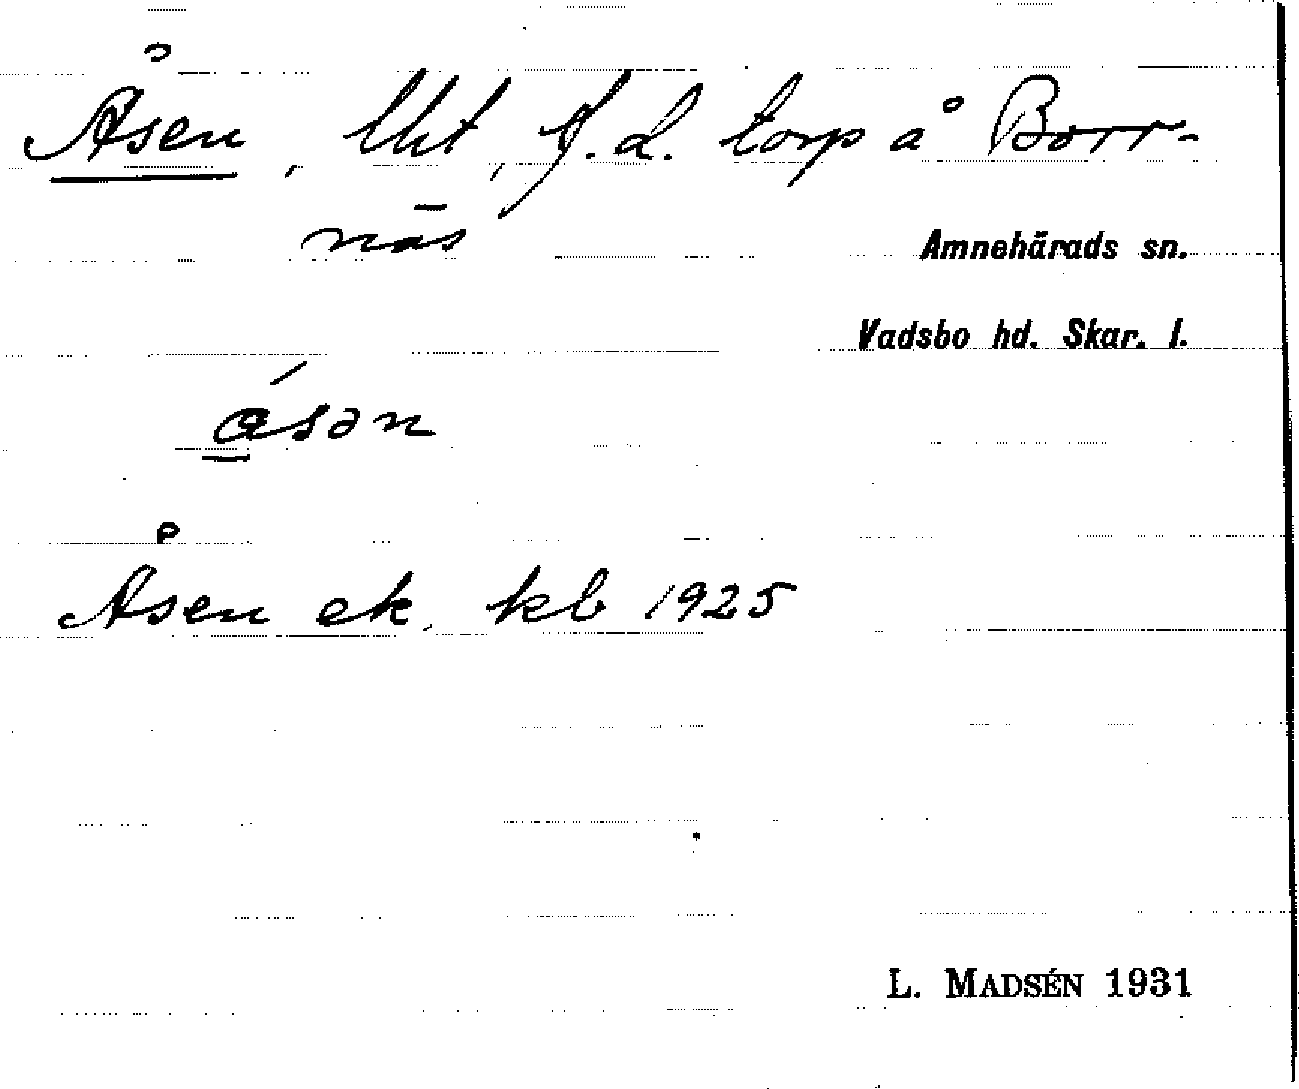 Åsen, lht, f.d. torp å Borr-
näs
Amnehärads sn.
Vadsbo hd. Skar. l.
åsən
Åsen ek. kb 1925
L. MADSÉN 1931